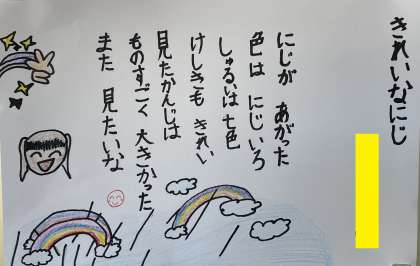 きれいなにじ
にじが あがった
色は にじいろ
しゅるいは 七色
けしきも きれい
見たかんじは
ものすごく 大きかった
また 見たいな